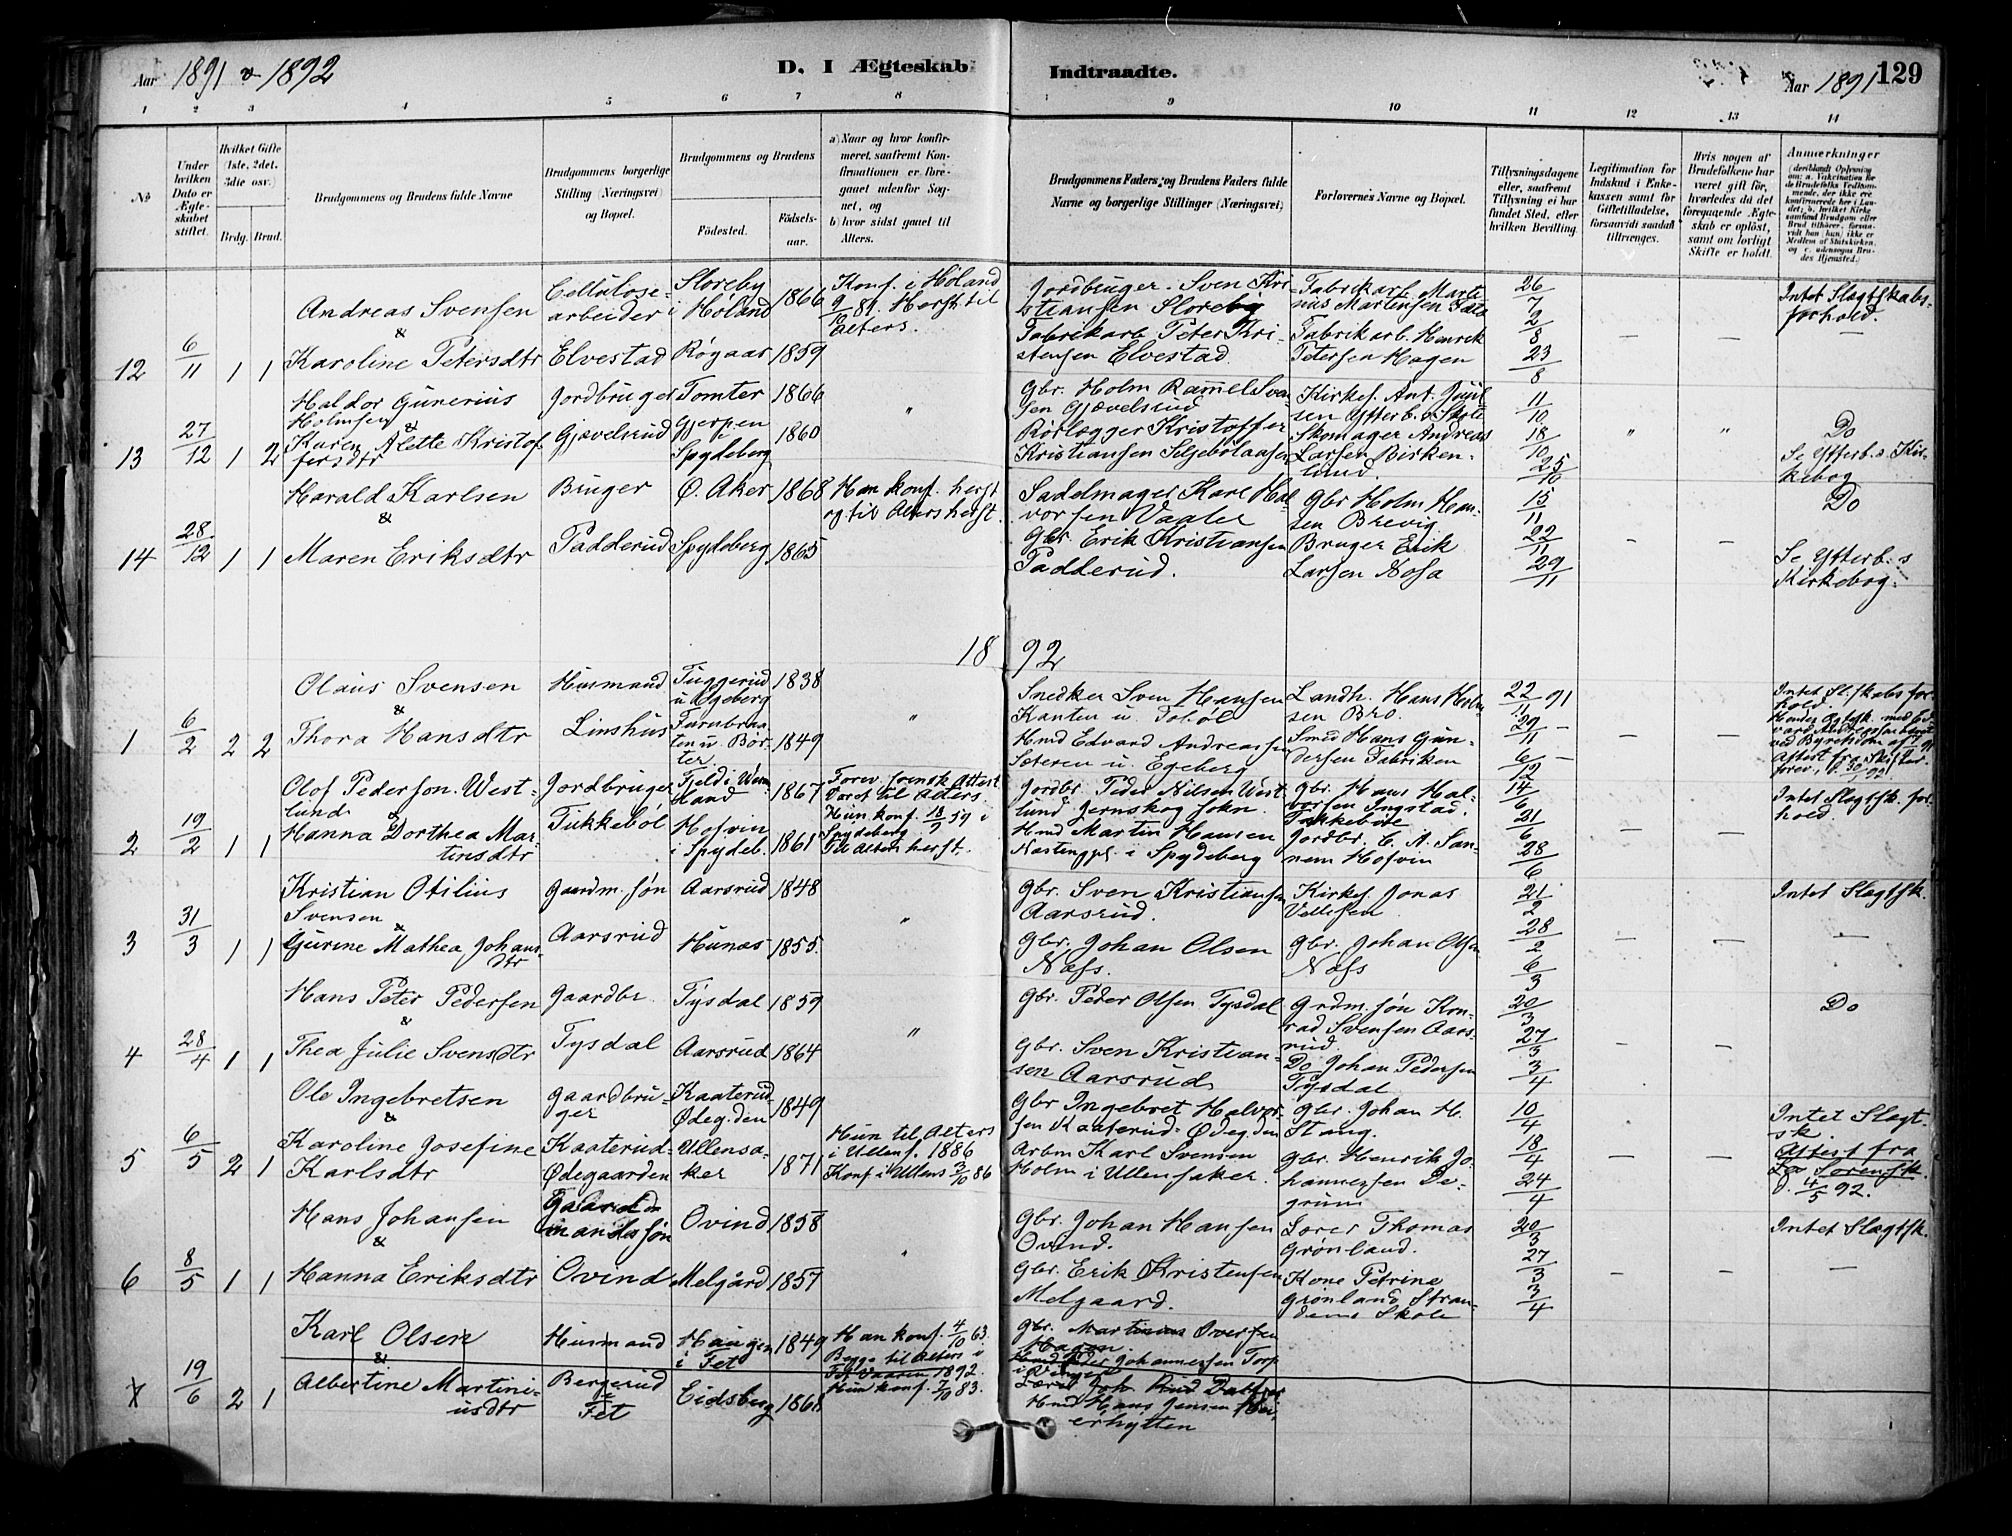 Aar 1891 & 1892
D. I Ægteskab Indtraadte.
Aar 1891 129
1 2 3 4 5 6 7 8 9 10 11 12 13 14
No
Under hvilken Dato er Ægteskabet stiftet.
Hvilket Gifte (1ste, 2det, 3die osv.)
Brdg. Brud.
Brudgommens og Brudens fulde Navne
Brudgommens borgerlige Stilling (Næringsvei) og Bopæl.
Brudgommens og Brudens
Fødested.
Fødselsaar.
a) Naar og hvor konfirmeret, saafremt Konfirmationen er foregaaet udenfor Sognet, og
b) hvor sidst gaaet til Alters.
Brudgommens Faders og Brudens Faders fulde Navne og borgerlige Stillinger (Næringsvei)
Forlovernes Navne og Bopæl.
Tillysningsdagene eller, saafremt Tillysning ei har fundet Sted, efter hvilken Bevilling.
Legitimation for Indskud i Enkekassen samt for Giftetilladelse, forsaavidt saadan tiltrænges.
Hvis nogen af Brudefolkene har været gift før, hvorledes da det foregaaende Ægteskab er opløst, samt om lovligt Skifte er holdt.
Anmærkninger
12 6/11 1 1
Andreas Svensen
&
Karoline Petersdtr
Cellulosearbeider
Elvestad
Sloreby i Høland 1866
Røgaar 1859
Konf. i Høland
9/10 81. Herfst til
Alters.
Jordbruger Sven Kristiansen Sloreby
Fabrikarb. Peter Kristensen Elvestad
Fabrikarb. Martinius Martinsen
Fabrikarb. Henrik Petersen Hagen
26/7 2/8 23/8
– –
Intet Slagtskabsforhold.
13 27/12 1 2
Haldor Gunerius Holmsen
&
Karen Alette Kristoffersdtr
Jordbruger
Gjævelsrud
Tomter 1866
Gjerpen Spydeberg 1860
"
Gbr. Holm Svensen Gjævelsrud
Rørlægger Kristoffer Kristiansen
Kirkes. Ant. Juulsen
Skomager Andreas Larsen Birkenlund
11/10 18/10 25/10
" "
Do
Se Ytterb.s Kirkebog
14 28/12 1 1
Harald Karlsen
&
Maren Eriksdtr
Bruger
Padderud
Ø. Aker 1868
Spydeberg 1865
Han konf. herst
og til Alters herst.
Sadelmager Karl Halvorsen Vaaler
Gbr Erik Kristiansen Padderud.
Gbr Holm Hansen Brevig
Bruger Erik Larsen Nosa
15/11 22/11 29/11
– –
Do
Se Ytterb.s Kirkebog.
1892
1 6/2 2 2
Olaus Svensen
&
Thora Hansdtr
Husmand
Linshus
Tuggerud u Egeberg 1838
1849
"
Snedker Sven Hansen Kanten u.
Hmd Edvard Andreassen Sæteren u. Egeberg
Landh. Hans Holmsen Bro.
Smed Hans Gundersen Fabriken
22/11 91 29/11 – 6/12 –
– –
Intet Sl.skabsforhold.
2 19/2 1 1
Olof Pederson Westlund
&
Hanna Dorthea Martinsdtr
Jordbruger
Tukkebøl
1867
Hofvin i Spydeb. 1861
Forev. svensk Attest
Spydeberg
Til Alters herst.
Jordbr Peder Nilsen Westlund Jernskog sokn.
Hmd Martin Hansen
i Spydeberg
Gbr. Hans Halvorsen Ingstad.
Jordbr. E. A. Sannem Hofvin
14/6 21/6 28/6
– –
Intet Slagtsk. forhold.
3 31/3 1 1
Kristian Otilius Svensen
&
Gurine Mathea Johansdtr
Gaardm. søn
Aarsrud
Aarsrud 1848
Hunæs 1855.
"
Gbr. Sven Kristiansen Aarsrud.
Gbr. Johan Olsen Næss.
Kirkes. Jonas Vellesen
Gbr. Johan Olsen Næss
21/2 28/2 6/3
– –
Intet Slagtsk.
–
4 28/4 1 1
Hans Peter Pedersen
&
Thea Julie Svensdtr
Gaardbr.
Tysdal
Tysdal 1859
Aarsrud 1864
"
Gbr. Peder Olsen Tysdal
Gbr. Sven Kristiansen Aarsrud
Grdm. søn Konrad Svensen Aarsrud.
Do Johan Pedersen Tysdal
20/3 27/3 3/4
– –
Do
5 6/5 2 1
Ole Ingebretsen
&
Karoline Josefine Karlsdtr
Gaardbruger
Kaaterud-Ødegaarden
Kaaterud Ødeg.den 1849
Ullensaker 1871
Hun til Alters
i Ullens. 1886
Konf i Ullens 3/10 86
Gbr Ingebret Halvorsen Kaaterud-Ødeg.den
Arbm Karl Svensen Holm i Ullensaker.
Gbr. Johan H. Stang.
Gbr. Henrik Johannessen Degrum
10/4 18/4 24/4
– –
Intet Slagtsk
Attest fra
Sorensk
d. 4/5 92.
6 8/5 1 1
Hans Johansen
&
Hanna Eriksdtr
Gaardmandssøn
Ovind
Ovind 1858
Melgård 1857
"
Gbr. Johan Hansen Ovind.
Gbr. Erik Kristensen Melgaard.
Lærer Thomas Grønland.
Kone Petrine Grønland Strandens Skole
20/3 27/3 3/4
– –
Intet Slagtsk.
–
19/6 2 1
Karl Olsen
&
Albertine Martiniusdtr
Husmand
Bergerud i Fet
Haugen i Fet 1849
Eidsberg 1868
Han konf. 4/10 63.
Begge til Alters i
Fet Vaaren 1892.
Hun konf. 7/10 83.
Gbr. Martinius Oversen
Hagen